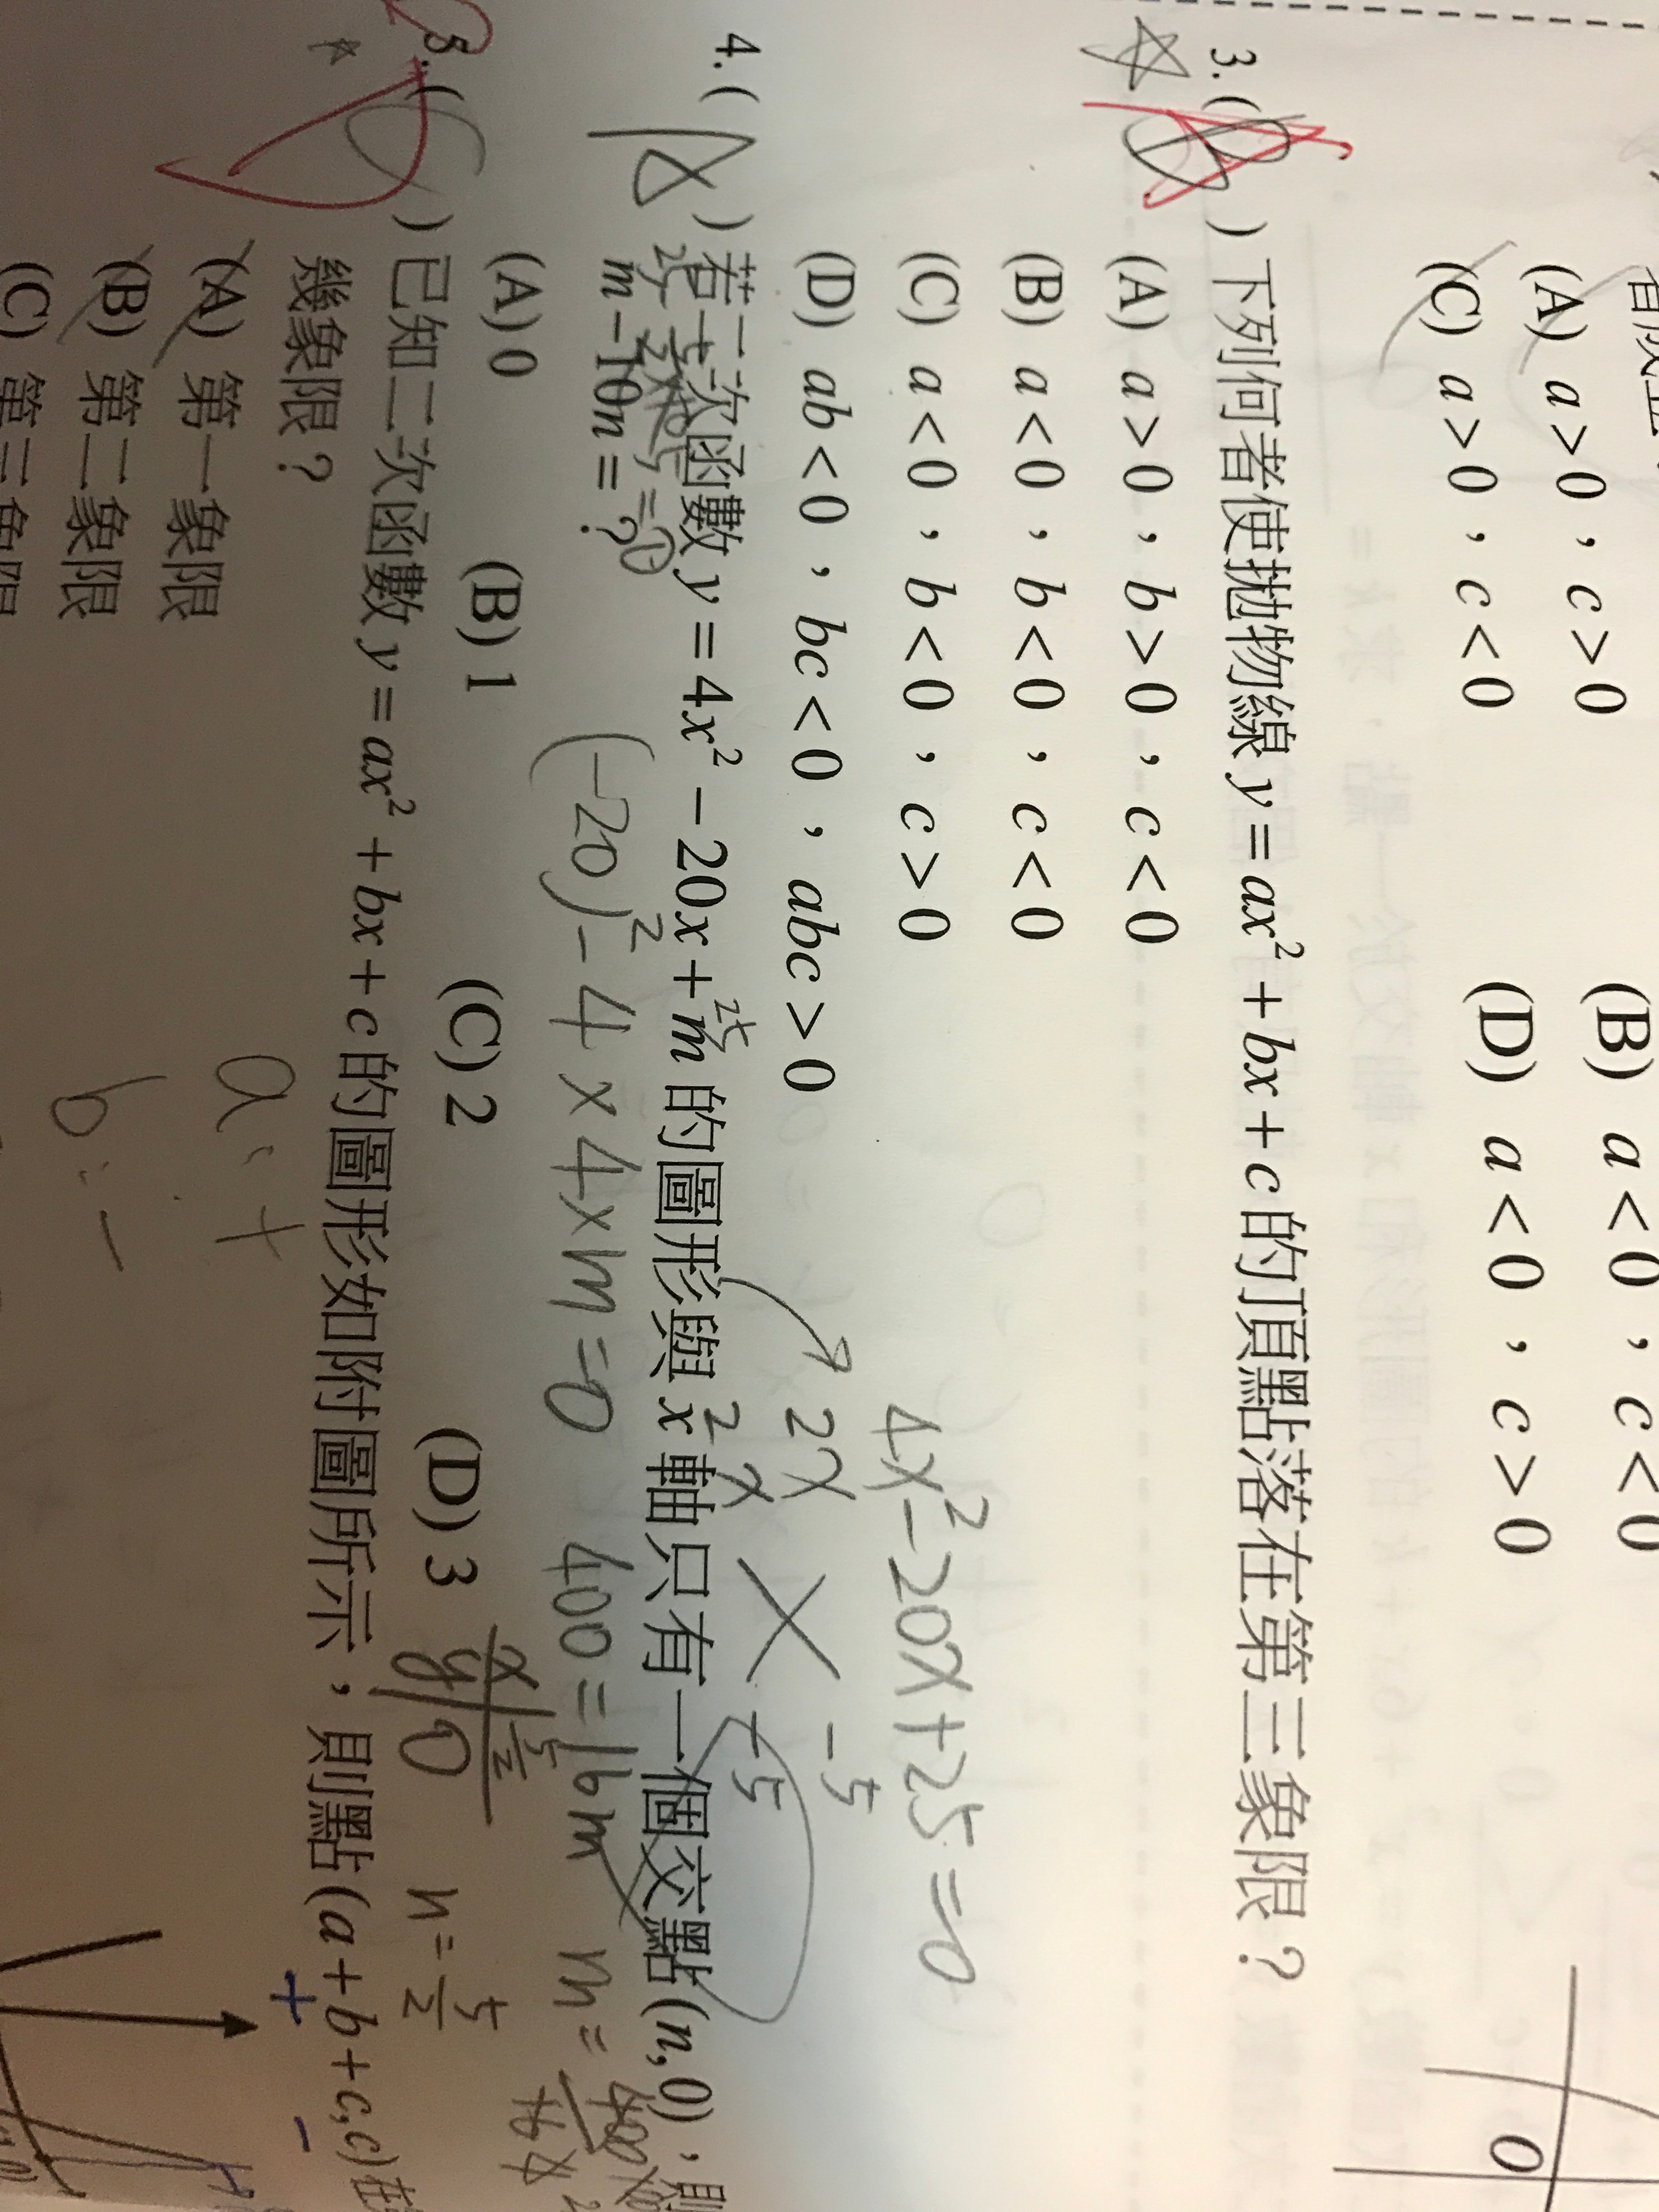 (A) a>0，c>0 (B) a<0，c<0
(C) a>0，c<0 (D) a<0，c>0
O
3.( ) 下列何者使拋物線 y=ax²+bx+c 的頂點落在第三象限？
(A) a>0，b>0，c<0
(B) a<0，b<0，c<0
(C) a<0，b<0，c>0
(D) ab<0，bc<0，abc>0
4x²-20x+25=0
2x -5
2x -5
25
4.( ) 若二次函數 y=4x²-20x+m 的圖形與 x 軸只有一個交點 (n,0)，則
m-10n=？
(-20)²-4×4×m=0 400=16m m=
(A) 0 (B) 1 (C) 2 (D) 3
x 5/2
y 0
n=5/2
5.( ) 已知二次函數 y=ax²+bx+c 的圖形如附圖所示，則點 (a+b+c,c) 在
幾象限？
+ -
(A) 第一象限
a:+
(B) 第二象限
b:-
(C) 第三象限